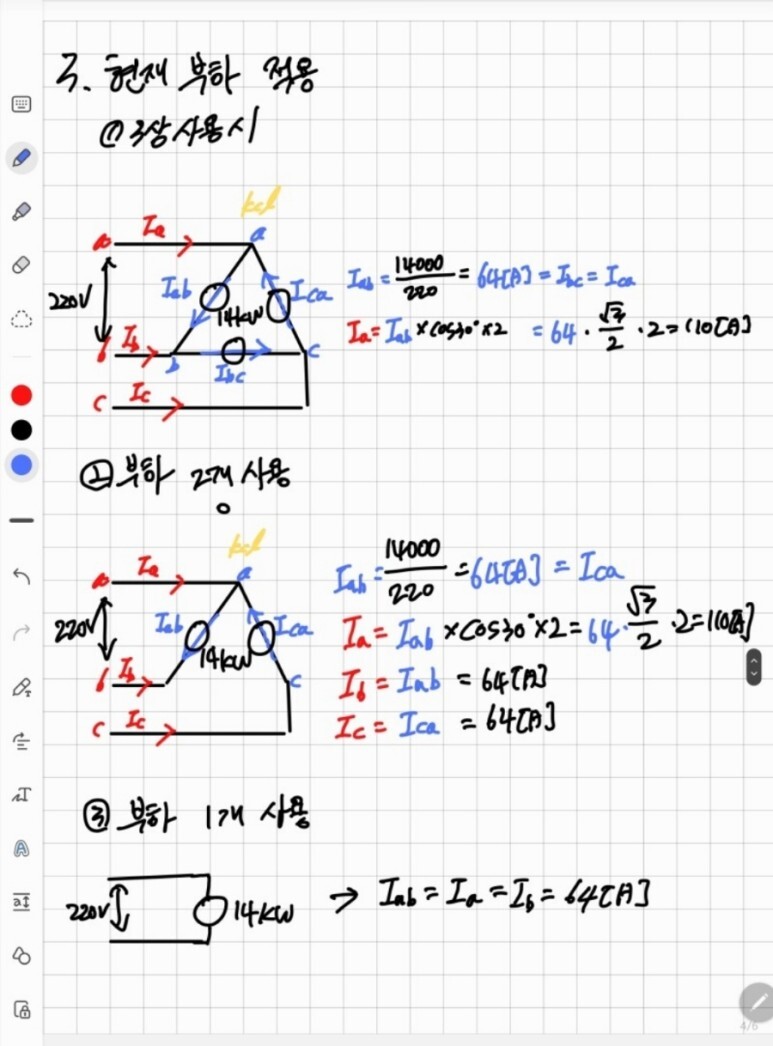 3. 현재 부하 적용
① 3상 사용시
kcl
a Ia a
220V Iab 14kW Ica
b Ib b Ibc c
c Ic
Iab = 14000/220 = 64[A] = Ibc = Ica
Ia = Iab × cos30° × 2 = 64 · √3/2 · 2 = 110[A]
② 부하 2개 사용
kcl
a Ia a
220V Iab 14kW Ica
b Ib c
c Ic
Iab = 14000/220 = 64[A] = Ica
Ia = Iab × cos30° × 2 = 64 · √3/2 · 2 = 110[A]
Ib = Iab = 64[A]
Ic = Ica = 64[A]
③ 부하 1개 사용
220V 14kW → Iab = Ia = Ib = 64[A]
4/6